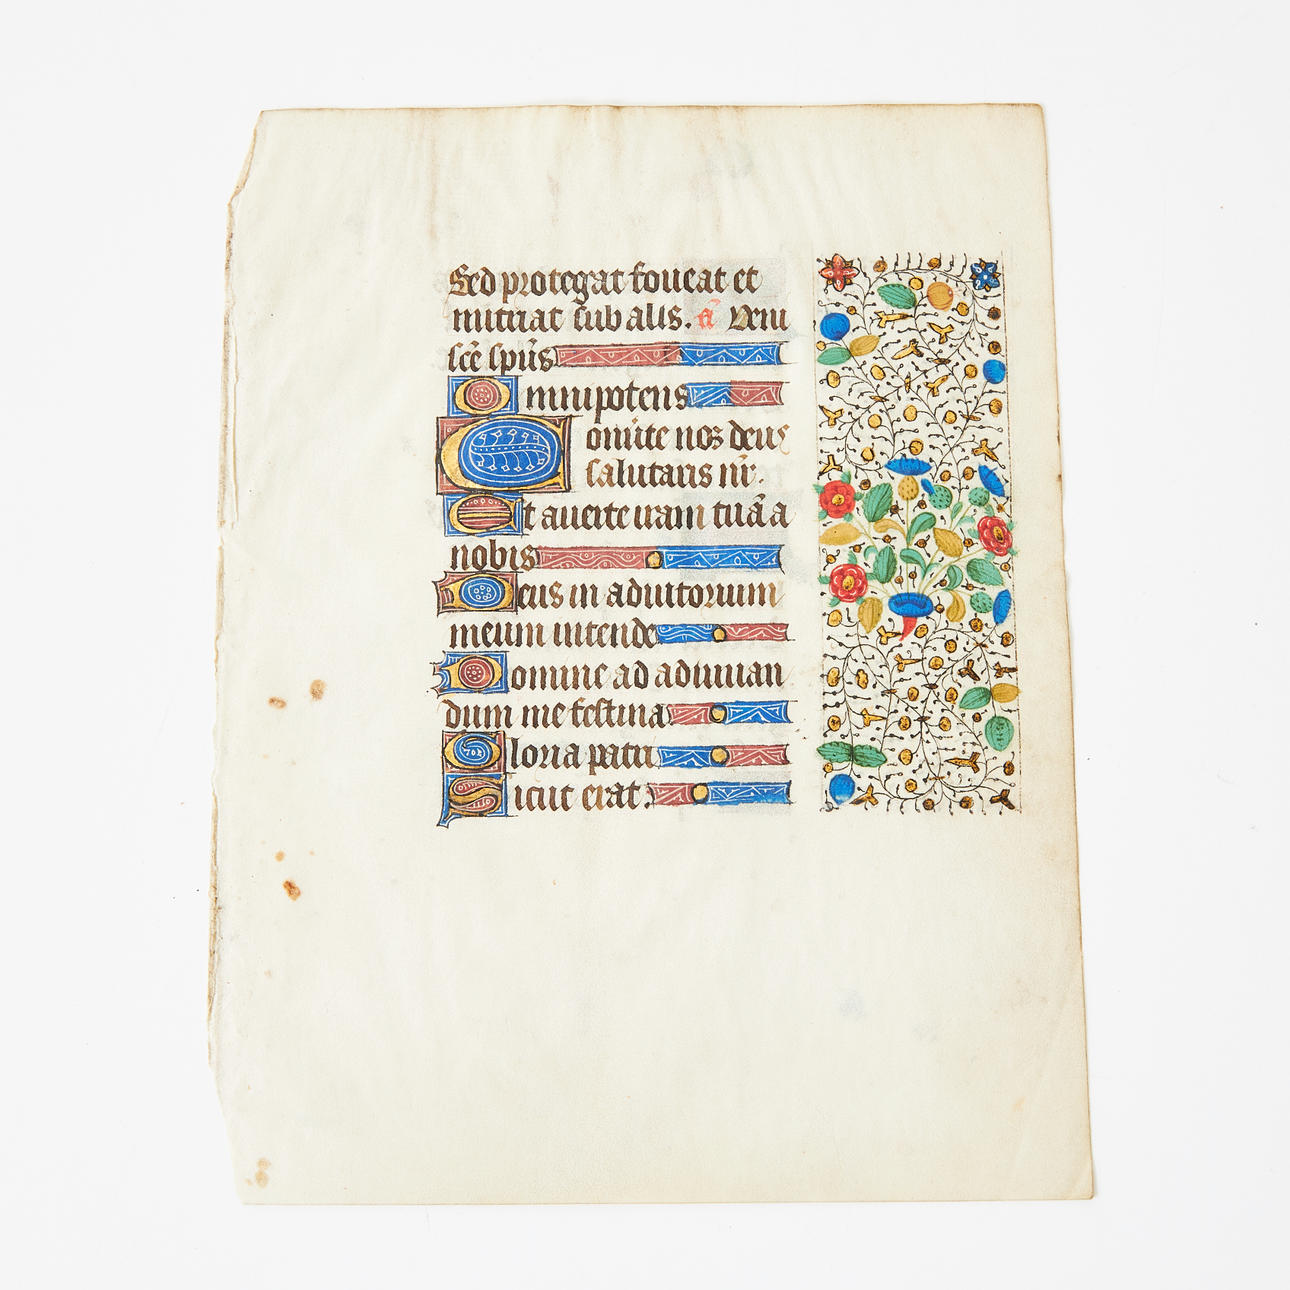 Sed protegat foueat et
muniat sub alis. a᷑ Veni
sc̄e sp̄us
Omnipotens
Conute nos deus
salutaris nr̄.
Et auerte iram tuā a
nobis
Deus in adiutorium
meum intende
Domine ad adiuuan
dum me festina
Gloria patri
Sicut erat.